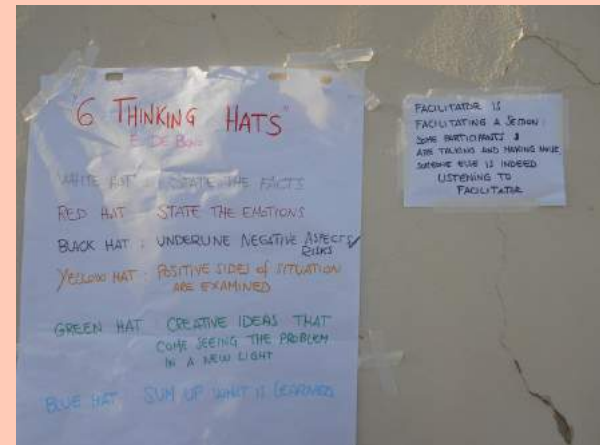 "6 THINKING HATS"
E. DE BONO
WHITE HAT : STATE THE FACTS
RED HAT : STATE THE EMOTIONS
BLACK HAT : UNDERLINE NEGATIVE ASPECTS/
RISKS
YELLOW HAT : POSITIVE SIDES of SITUATION
ARE EXAMINED
GREEN HAT CREATIVE IDEAS THAT
COME SEEING THE PROBLEM
IN A NEW LIGHT
BLUE HAT SUM UP WHAT IS LEARNED
FACILITATOR IS
FACILITATING A SESSION :
SOME PARTICIPANTS
ARE TALKING AND MAKING NOISE
SOMEONE ELSE IS INDEED
LISTENING TO
FACILITATOR